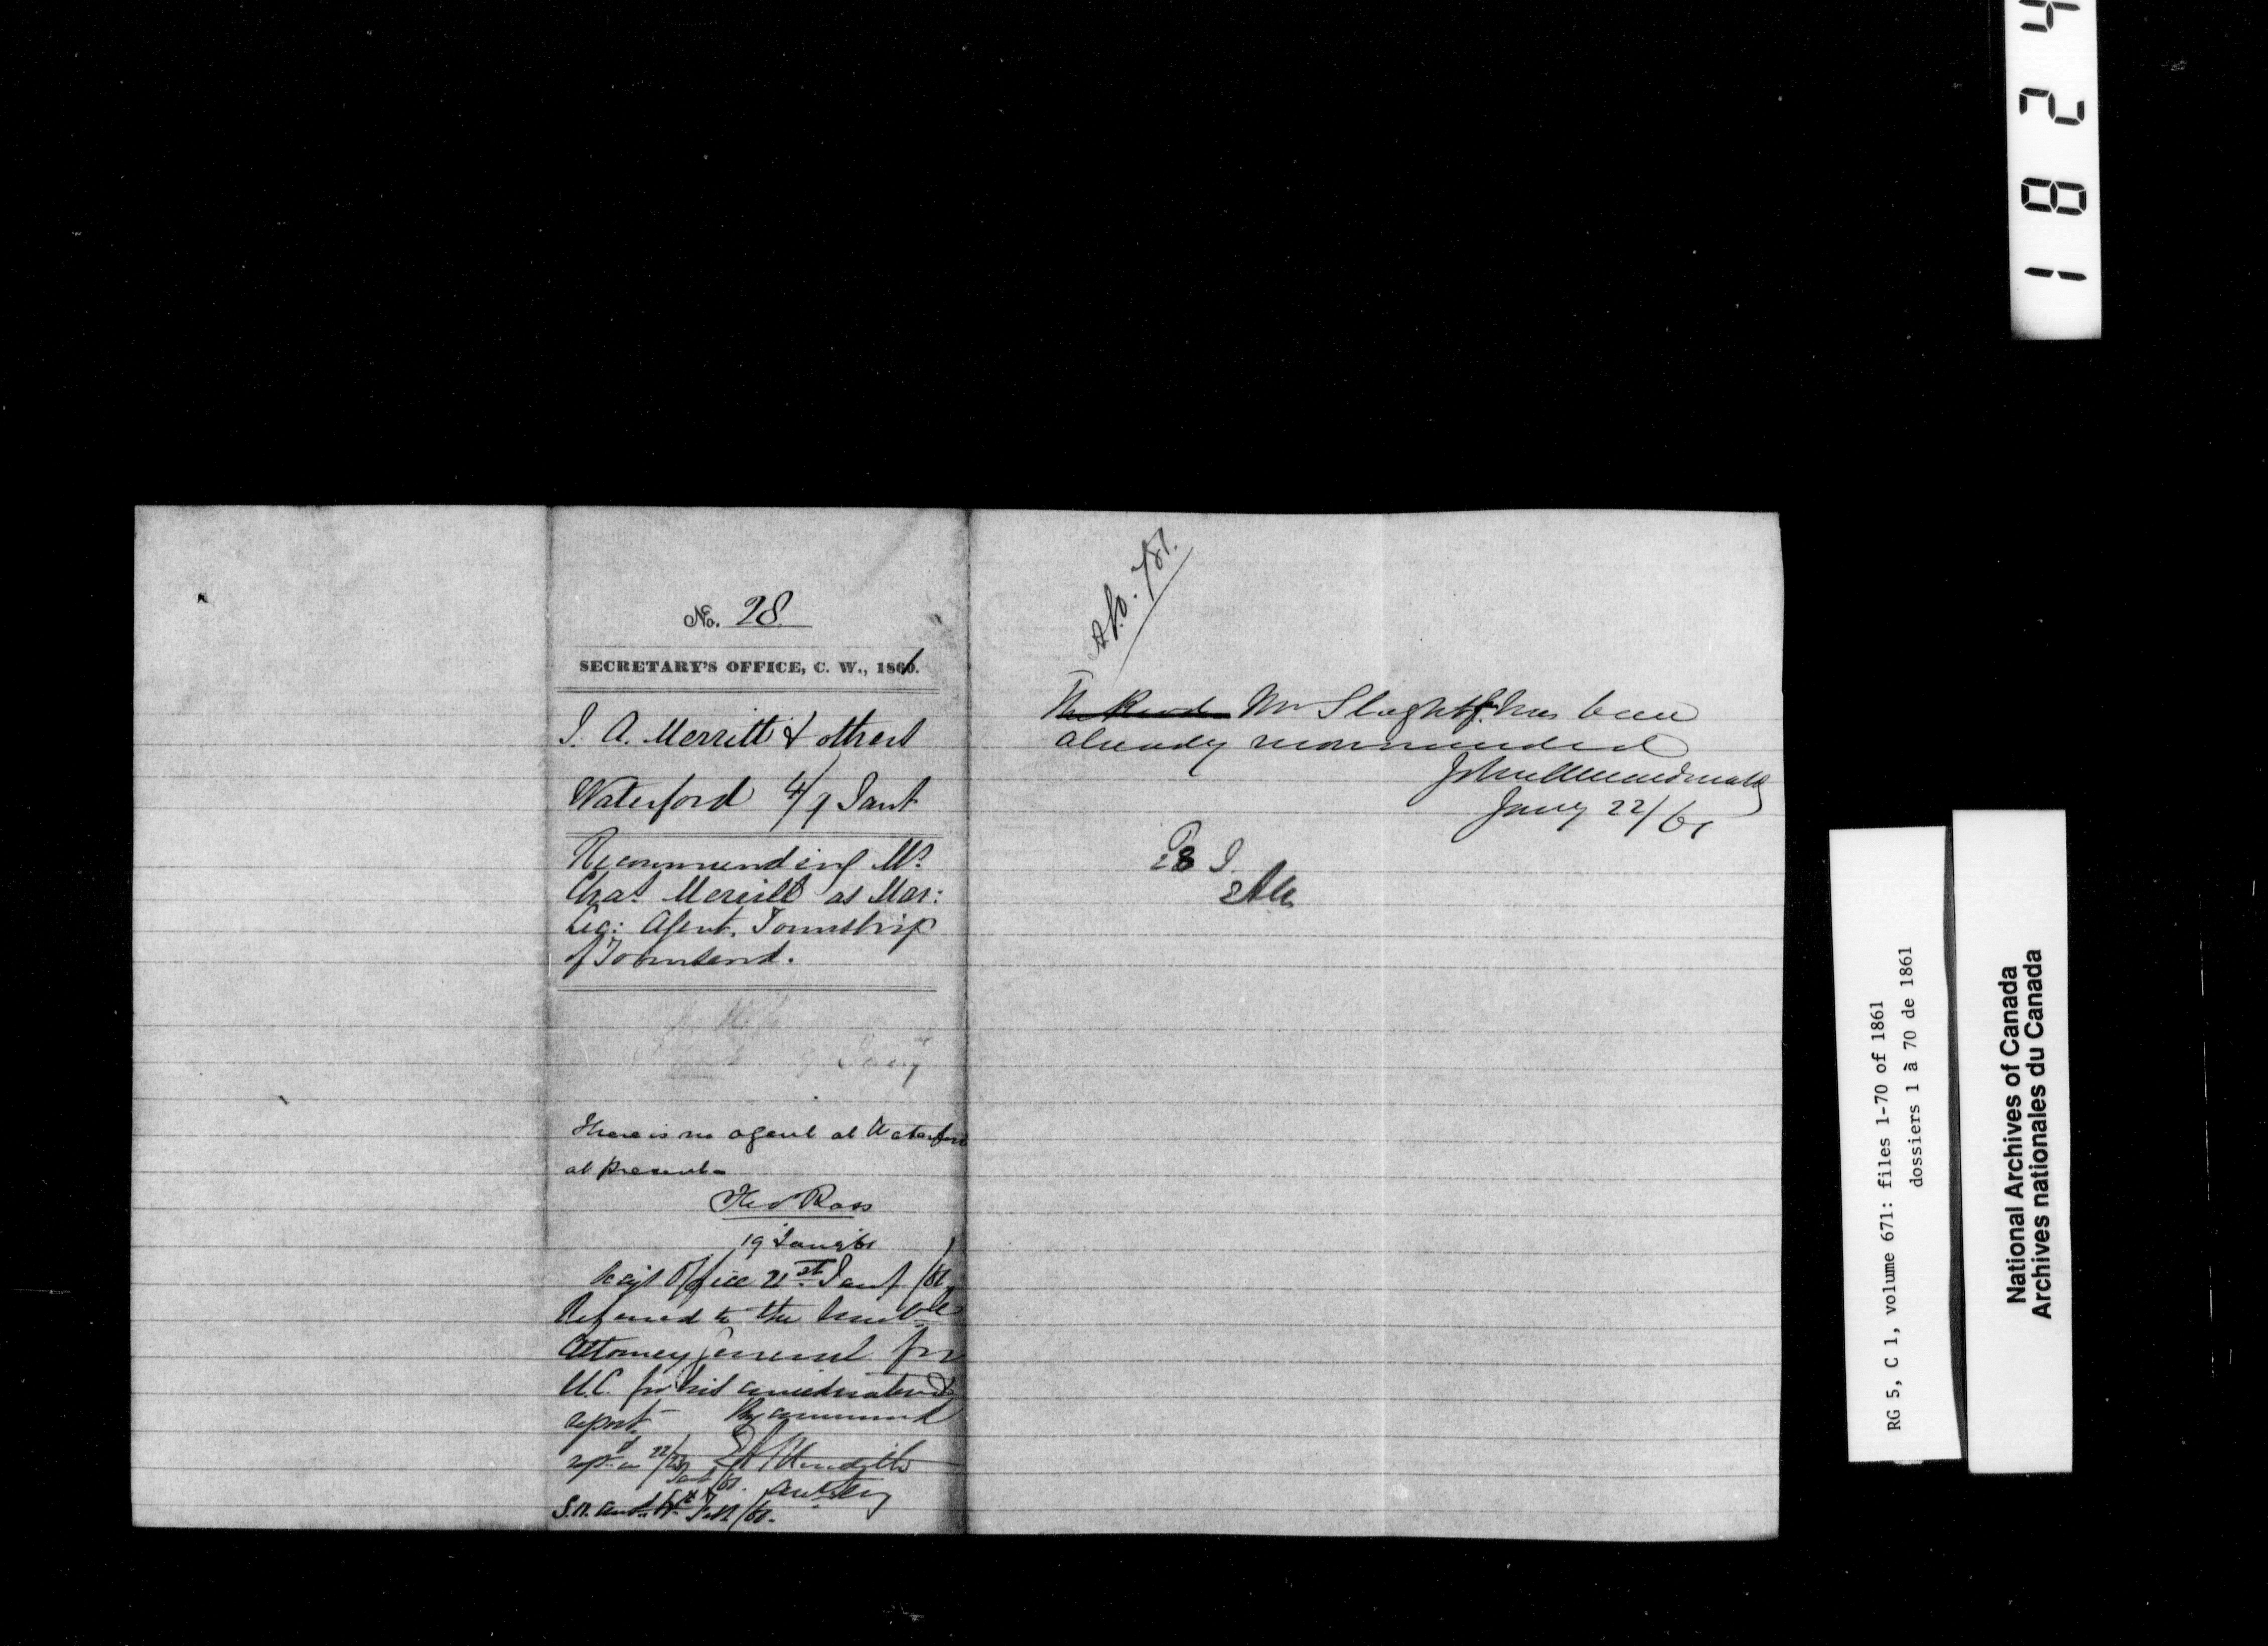 No. 28
SECRETARY'S OFFICE, C. W., 1861.
I. A. Merritt & others
Waterford 4/9 Jany
Recommending Mr.
Chas. Merritt as Mar:
Lic: Agent. Township
of Townsend.
9 Jany
There is no agent at Waterford
at present-
Theo Ross
19 Jany 61
Secy's Office 21st Jany /61
Referred to the Honble
Attorney General for
U.C. for his consideration &
report- By command
E A Meredith
Asst Secy
/61.
The Revd Mr Slaght has been
already recommended
John A Macdonald
Jany 22/61
28
1824
RG 5, C 1, volume 671: files 1-70 of 1861
dossiers 1 à 70 de 1861
National Archives of Canada
Archives nationales du Canada